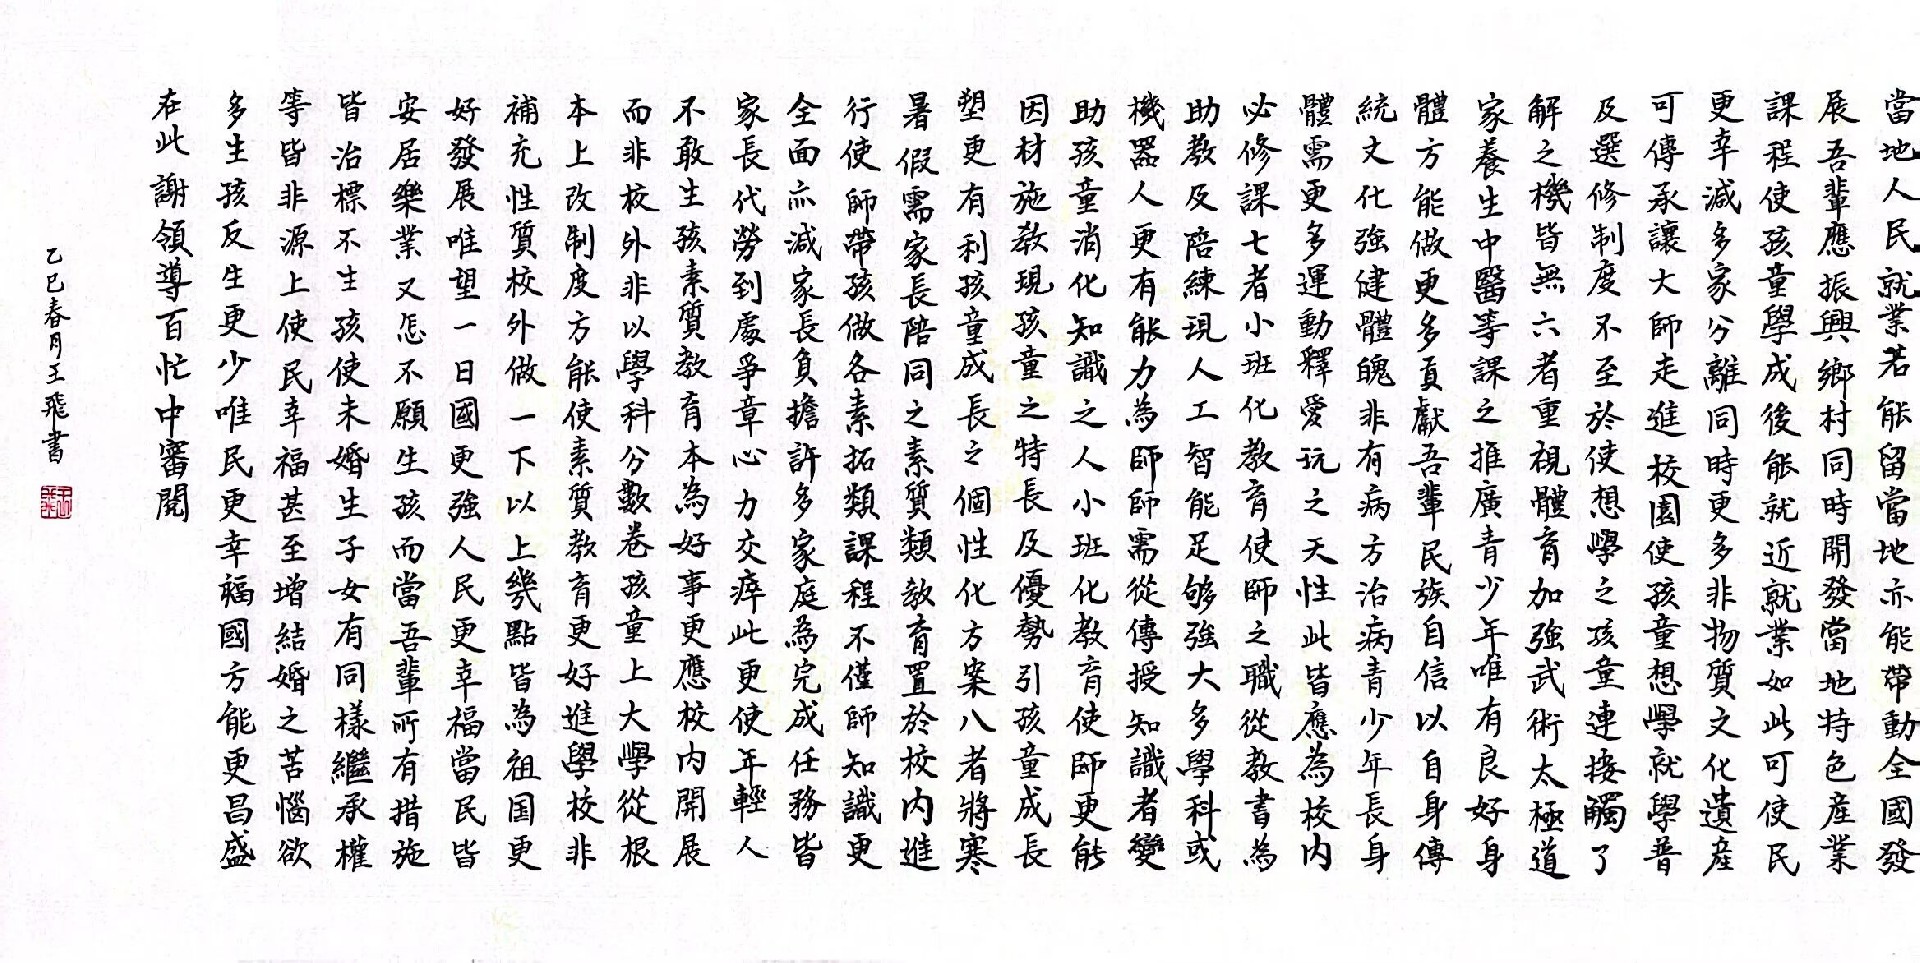 當地人民就業若能留當地亦能帶動全國發
展吾輩應振興鄉村同時開發當地特色產業
課程使孩童學成後能就近就業如此可使民
更幸減多家分離同時更多非物質文化遺産
可傳承讓大師走進校園使孩童想學就學普
及選修制度不至於使想學之孩童連接觸了
解之機皆無六者重視體育加強武術太極道
家養生中醫等課之推廣青少年唯有良好身
體方能做更多貢獻吾輩民族自信以自身傳
統文化強健體魄非有病方治病青少年長身
體需更多運動釋愛玩之天性此皆應為校内
必修課七者小班化教育使師之職從教書為
助教及陪練現人工智能足够強大多學科或
機器人更有能力為師師需從傳授知識者變
助孩童消化知識之人小班化教育使師更能
因材施教現孩童之特長及優勢引孩童成長
塑更有利孩童成長之個性化方案八者將寒
暑假需家長陪同之素質類教育置於校内進
行使師帶孩做各素拓類課程不僅師知識更
全面亦減家長負擔許多家庭為完成任務皆
家長代勞到處爭章心力交瘁此更使年輕人
不敢生孩素質教育本為好事更應校内開展
而非校外非以學科分數卷孩童上大學從根
本上改制度方能使素質教育更好進學校非
補充性質校外做一下以上幾點皆為祖国更
好發展唯望一日國更強人民更幸福當民皆
安居樂業又怎不願生孩而當吾輩所有措施
皆治標不生孩使未婚生子女有同樣繼承權
等皆非源上使民幸福甚至增結婚之苦惱欲
多生孩反生更少唯民更幸福國方能更昌盛
在此謝領導百忙中審閱
乙巳春月王飛書